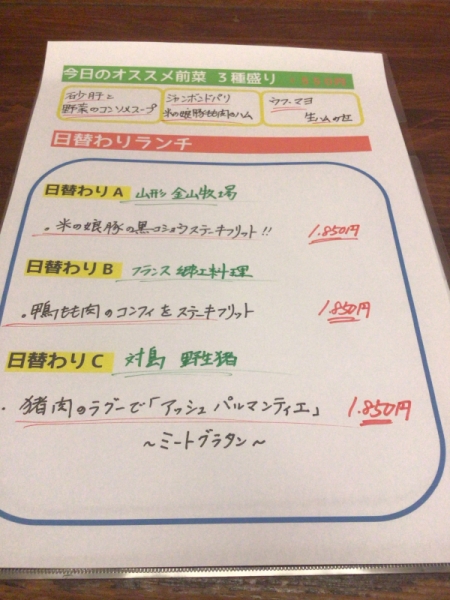 今日のオススメ前菜 3種盛り
砂肝と
野菜のコンソメスープ
ジャンボンドパリ
米の娘豚もも肉のハム
ウフ・マヨ
生ハム
日替わりランチ
日替わりA 山形 金山牧場
・米の娘豚の黒コショウステーキフリット!! 1.850円
日替わりB フランス郷土料理
・鴨もも肉のコンフィ をステーキフリット 1.850円
日替わりC 対島 野生猪
・猪肉のラグーで「アッシュ パルマンティエ」 1.850円
〜ミートグラタン〜